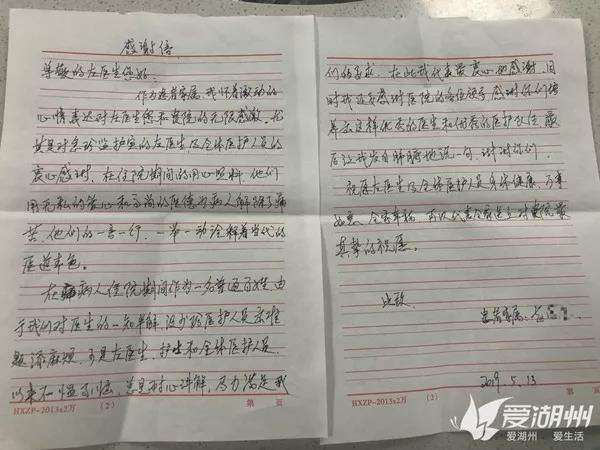 感谢信
尊敬的左医生您好:
作为患者家属,我怀着激动的
心情表达对左医生您和贵院的无限感激,尤
其是对重症监护室的左医生及全体医护人员的
衷心感谢,在住院期间的用心照料,他们
用无私的爱心和高尚的医德为病人解除了痛
苦,他们的一言一行,一举一动诠释着当代的
医道本色。
在病人住院期间作为一名普通百姓,由
于我们对医生的一知半解,没少给医护人员出难
题添麻烦,可是左医生,护士和全体医护人员
从来不愠不恼,总是耐心讲解,尽力满足我
HXZP-2013x2万
(2)
第 页
们的要求,在此我代表最衷心的感谢,同
时我还要感谢医院的各位领导,感谢你们培
养出这样优秀的医生和优秀的医护队伍,最
后让我发自肺腑地说一句,谢谢你们。
祝愿左医生及全体医护人员身体健康,万事
如意,合家幸福,再次代表全家送上对贵院最
真挚的祝愿。
此致
患者家属:
2019.5.13
HXZP-2013x2万
(2)
第 页
爱湖州
爱湖州 爱生活